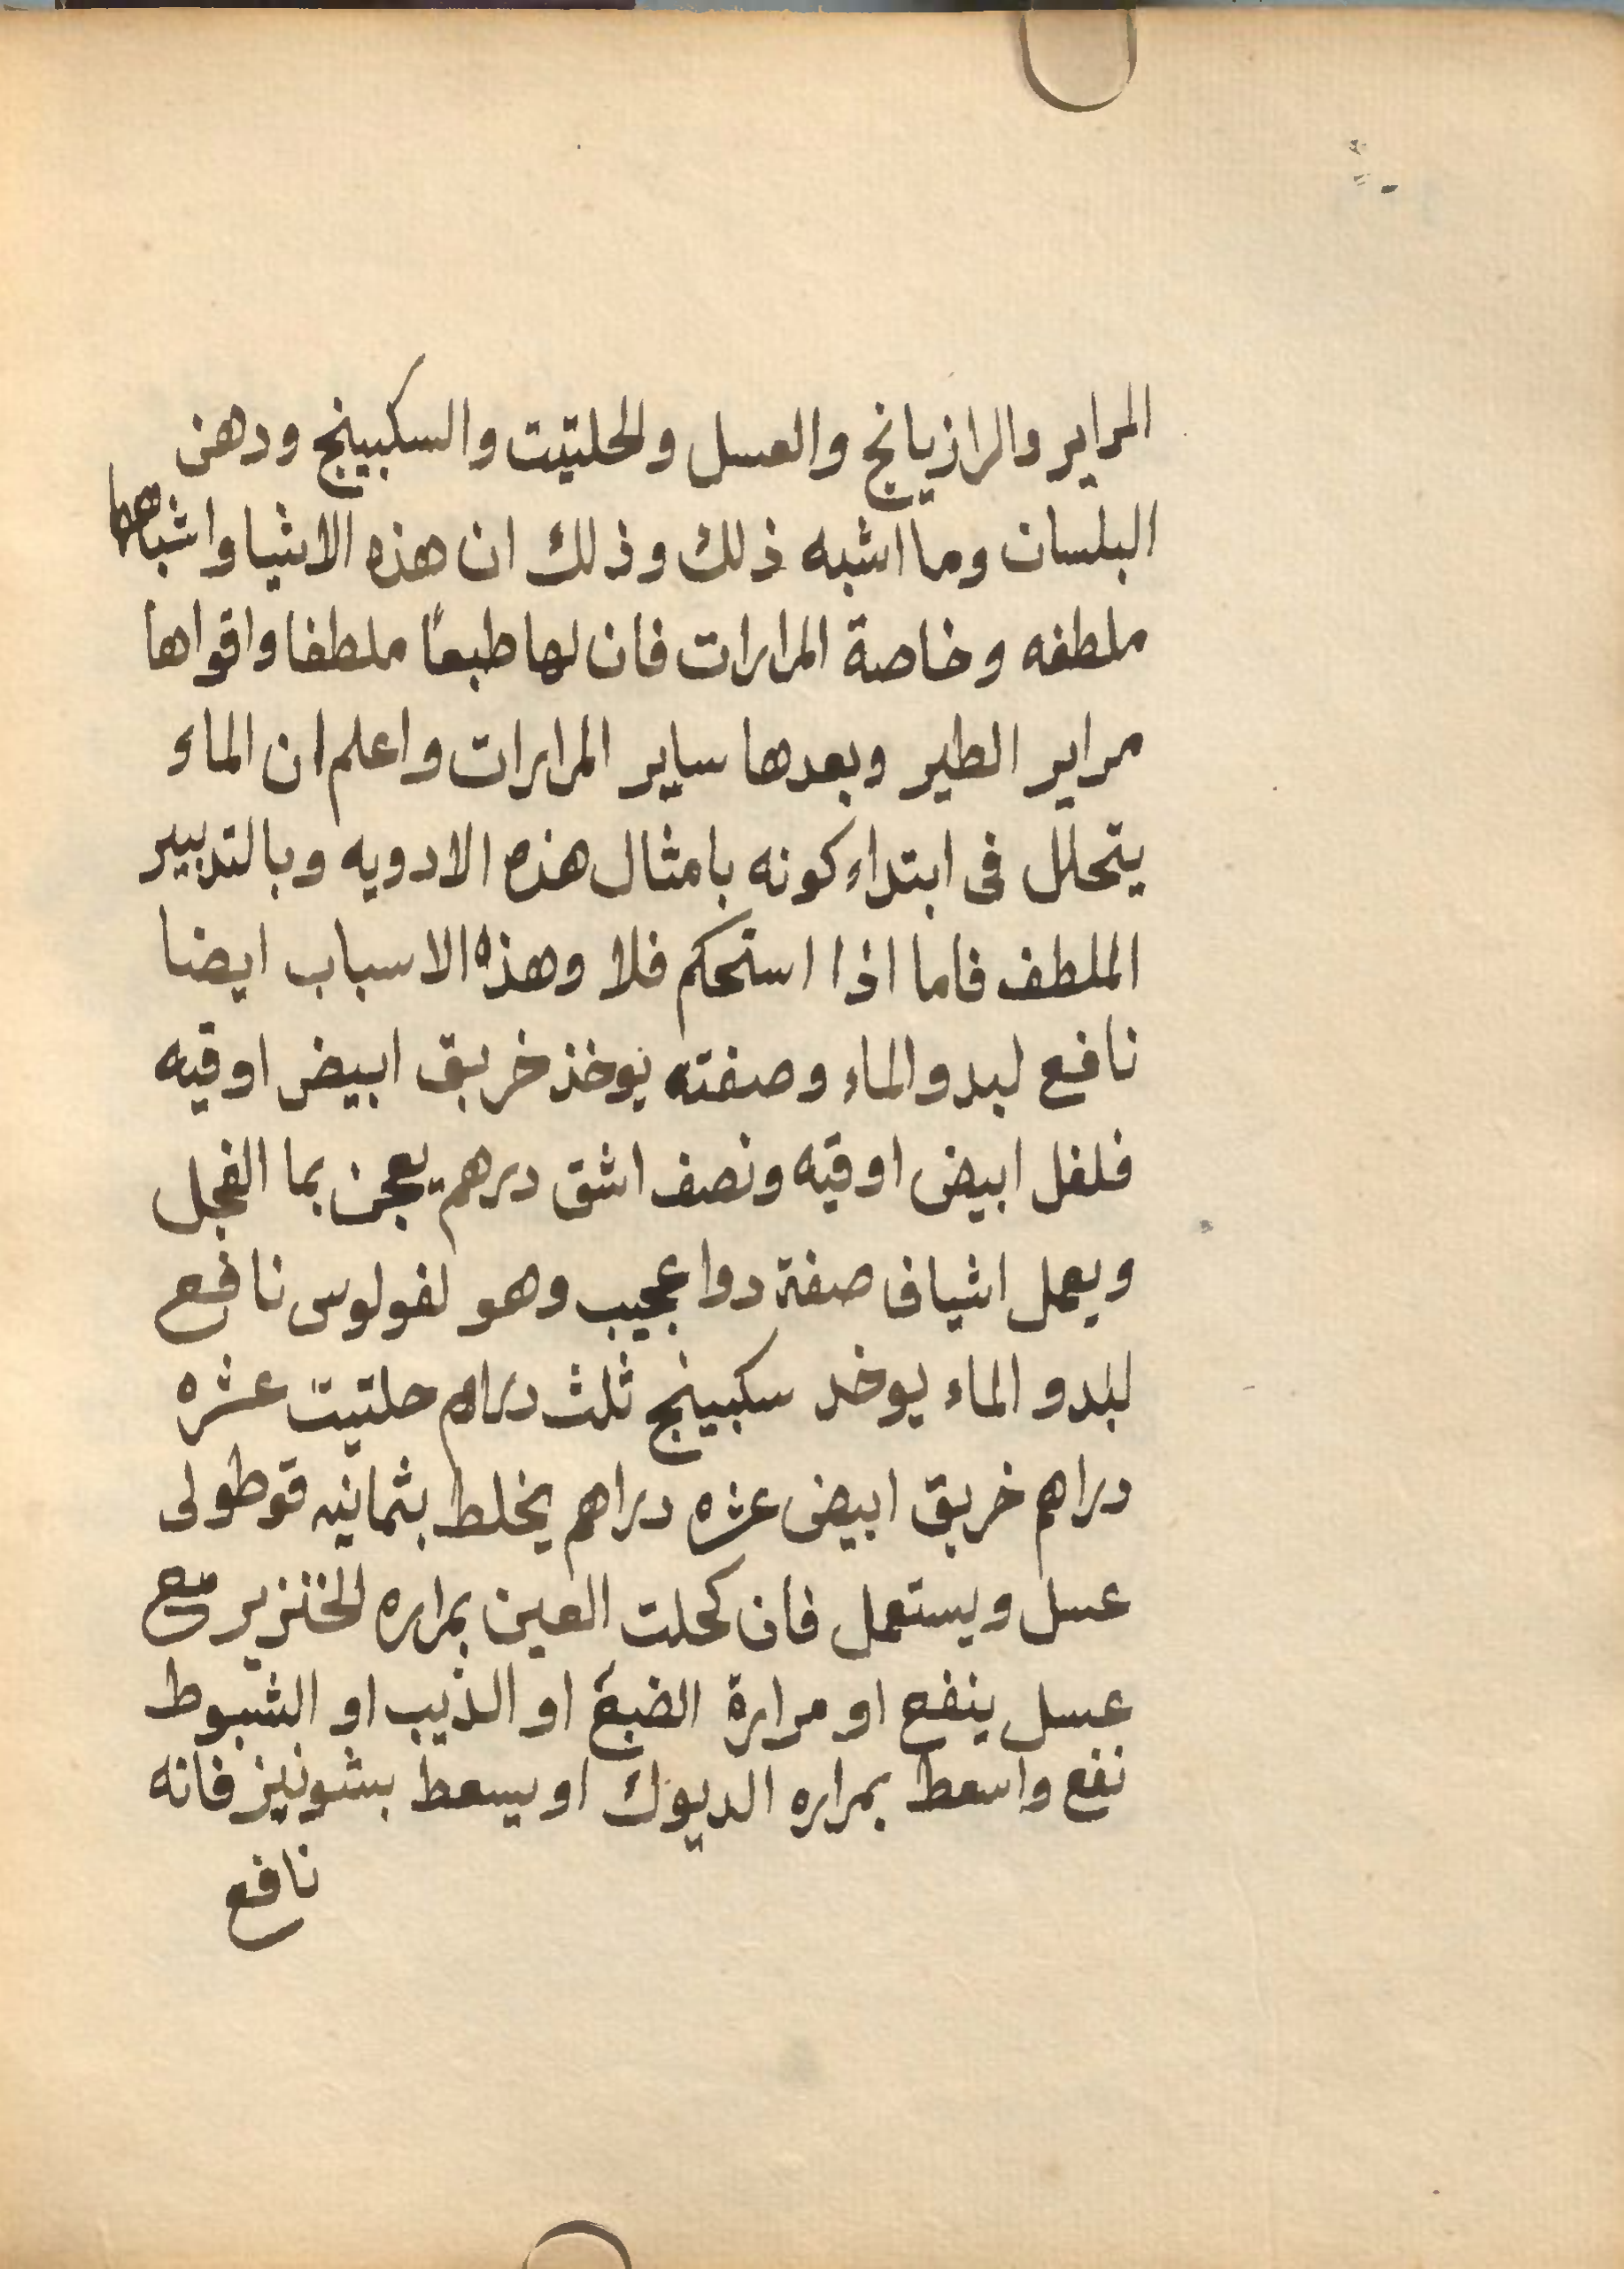 المراير والرازيانج والعسل والحلتيت والسكبينج ودهن
البلسان وما اشبه ذلك وذلك ان هذه الاشيا واشباهها
ملطفه وخاصة المرارات فان لها طبعًا ملطفا واقواها
مراير الطير وبعدها ساير المرارات واعلم ان الماء
يتحلل فى ابتداء كونه بامثال هذه الادويه وبالتدبير
الملطف فاما اذا استحكم فلا وهذه الاسباب ايضا
نافع لبدو الماء وصفته يوخذ خربق ابيض اوقيه
فلفل ابيض اوقيه ونصف اشق درهم يعجن بما الفجل
ويعمل اشياف صفة دوا عجيب وهو لفولوس نافع
لبدو الماء يوخد سكبينج ثلث دراهم حلتيت عشره
دراهم خربق ابيض عشره دراهم يخلط بثمانيه قوطولى
عسل ويستعمل فان كحلت العين بمراره الخنزير مع
عسل ينفع او مرارة الضبع او الذيب او الشبوط
نفع واسعط بمراره الديوك او يسعط بشونيز فانه
نافع